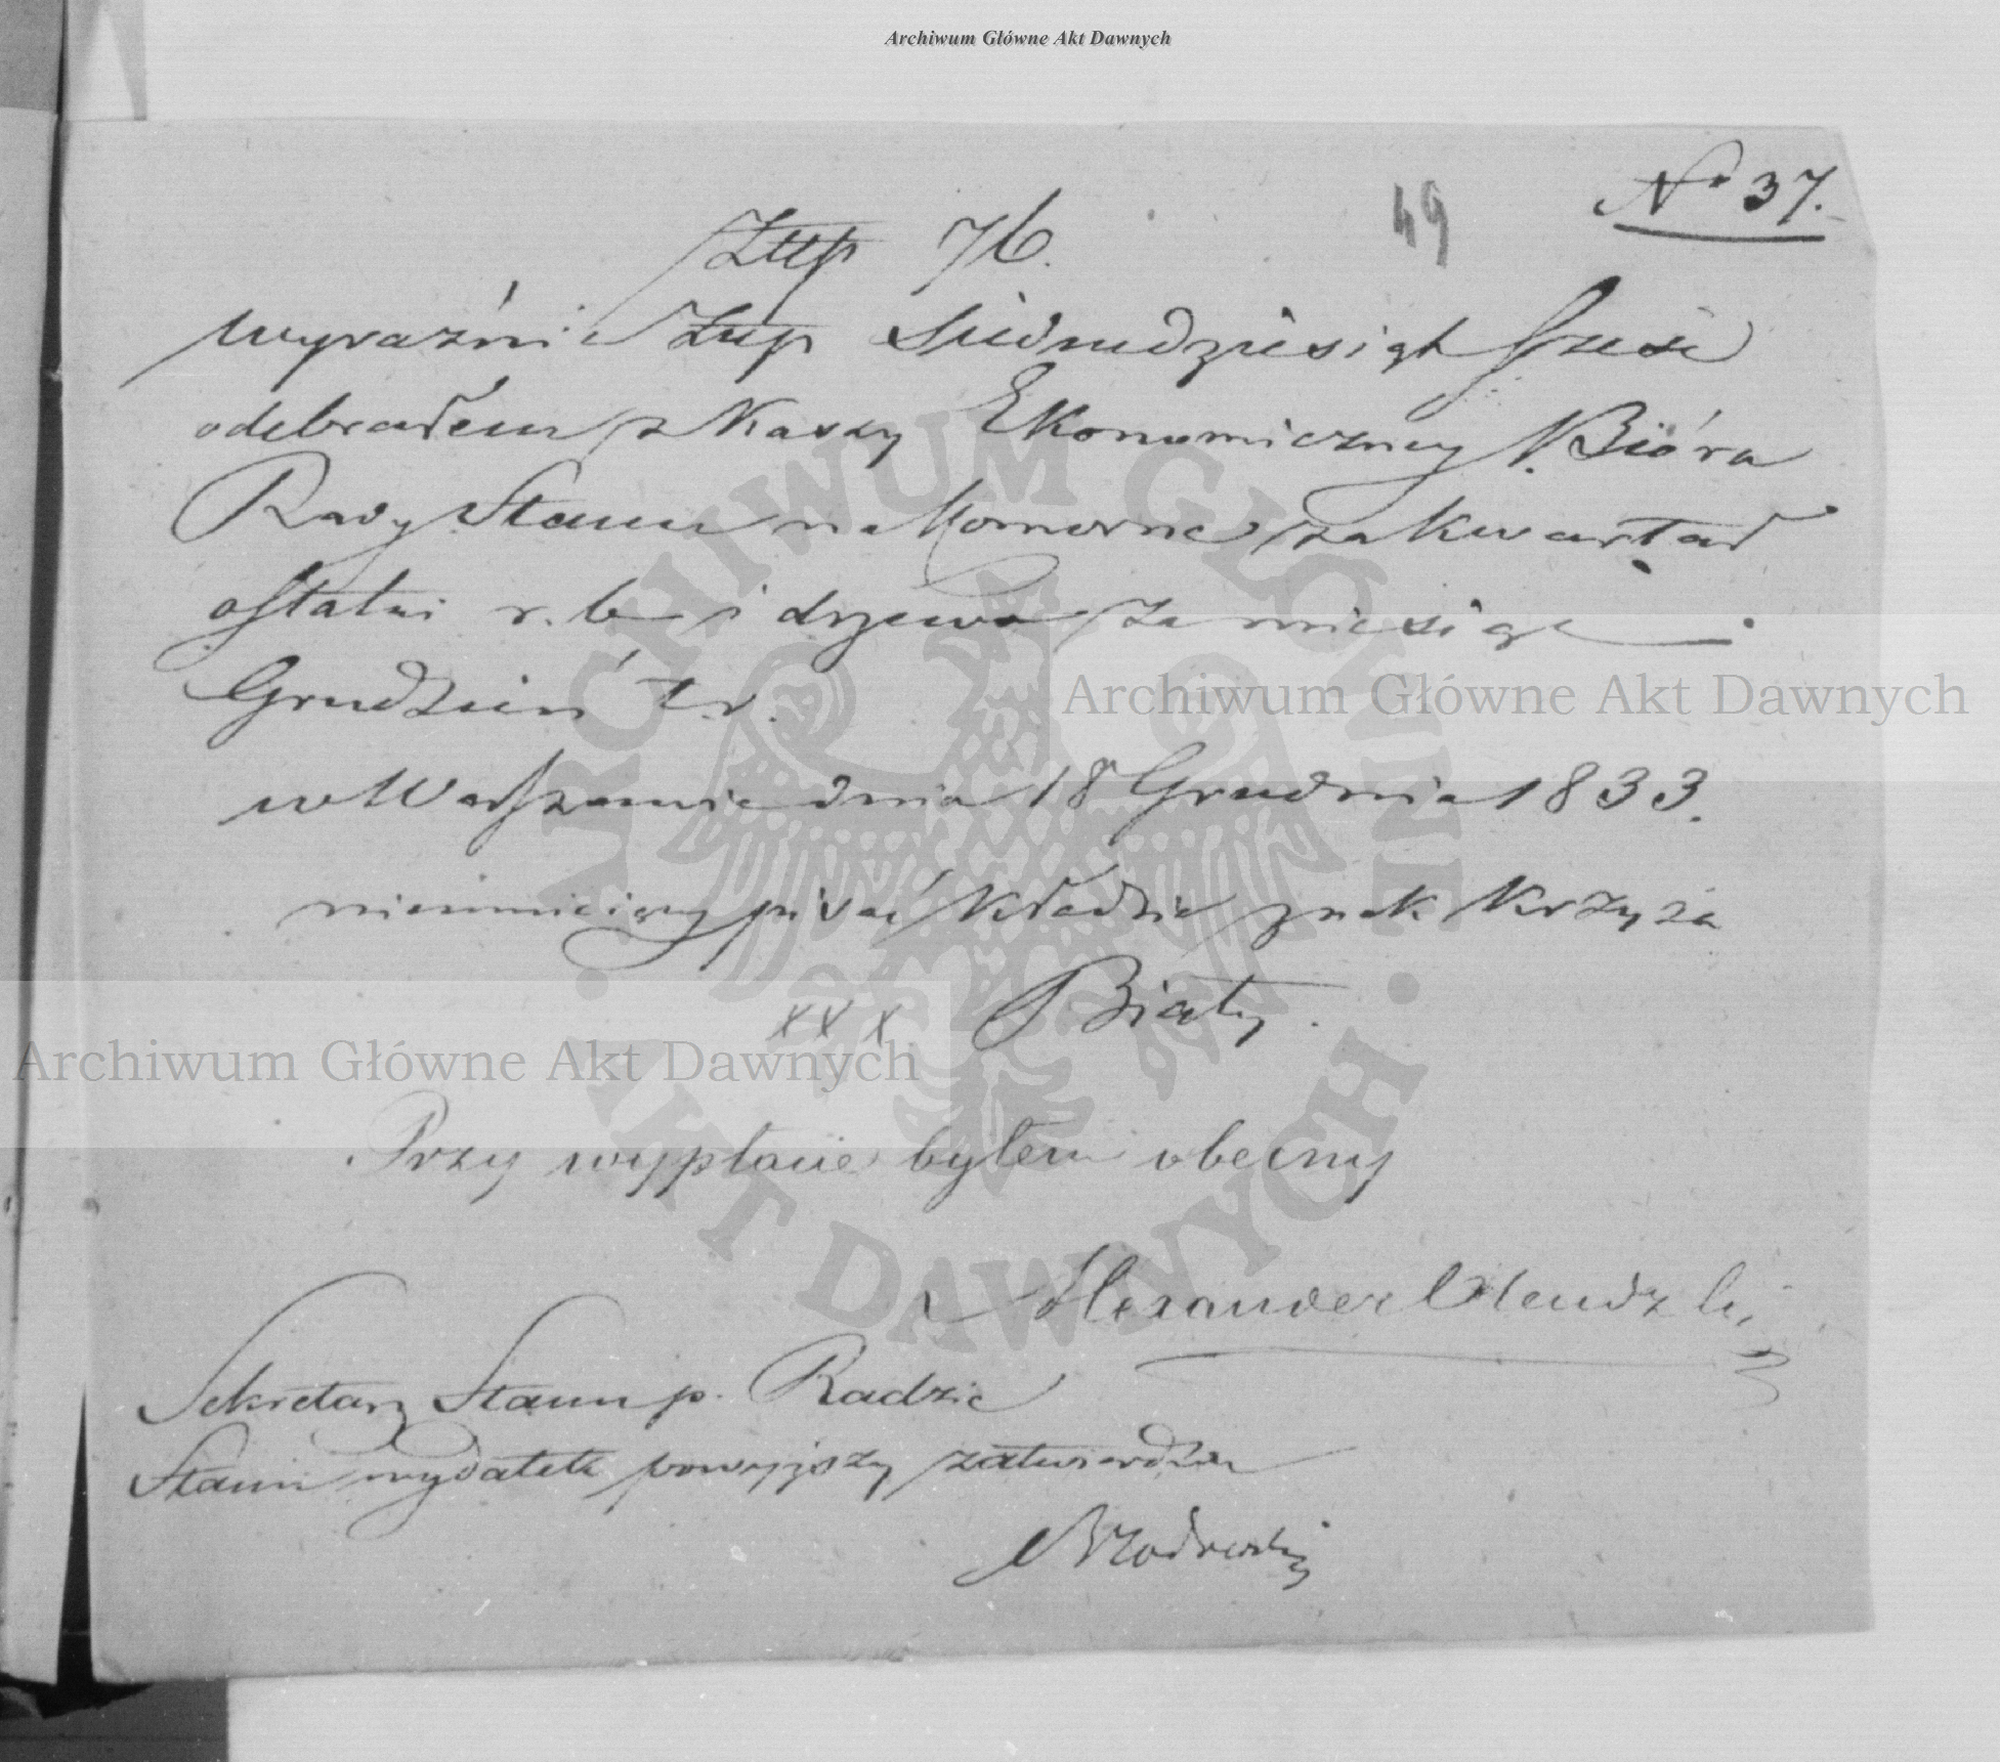 Archiwum Główne Akt Dawnych
No 37.
49
Złtp 76.
wyraźnie Złtp Siedmdziesiąt Sześć
odebrałem z Kassy Ekonomiczney Bióra
Rady Stanu na Komorne za Kwartał
ostatni r. b. i drzewo za miesiąc
Grudzień t. r.
w Warszawie dnia 18 Grudnia 1833.
nieumieiący pisać kładzie znak Krzyża
xxx Biały.
Przy wypłacie byłem obecny
Alexander
Sekretarz Stanu p. Radzie
Stanu wydatek powyższy zatwierdza
Archiwum Główne Akt Dawnych
Archiwum Główne Akt Dawnych
ARCHIWUM GŁÓWNE AKT DAWNYCH